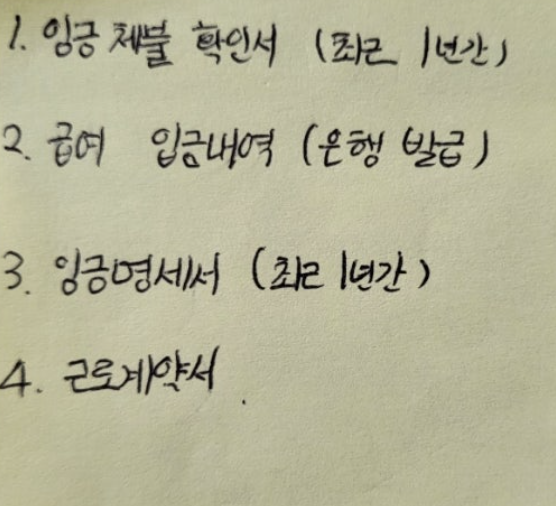 1. 임금 체불 확인서 (최근 1년간)
2. 급여 입금내역 (은행 발급)
3. 임금명세서 (최근 1년간)
4. 근로계약서